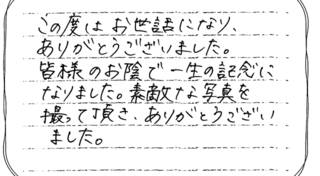 この度はお世話になり、
ありがとうございました。
皆様のお陰で一生の記念に
なりました。素敵な写真を
撮って頂き、ありがとうござい
ました。